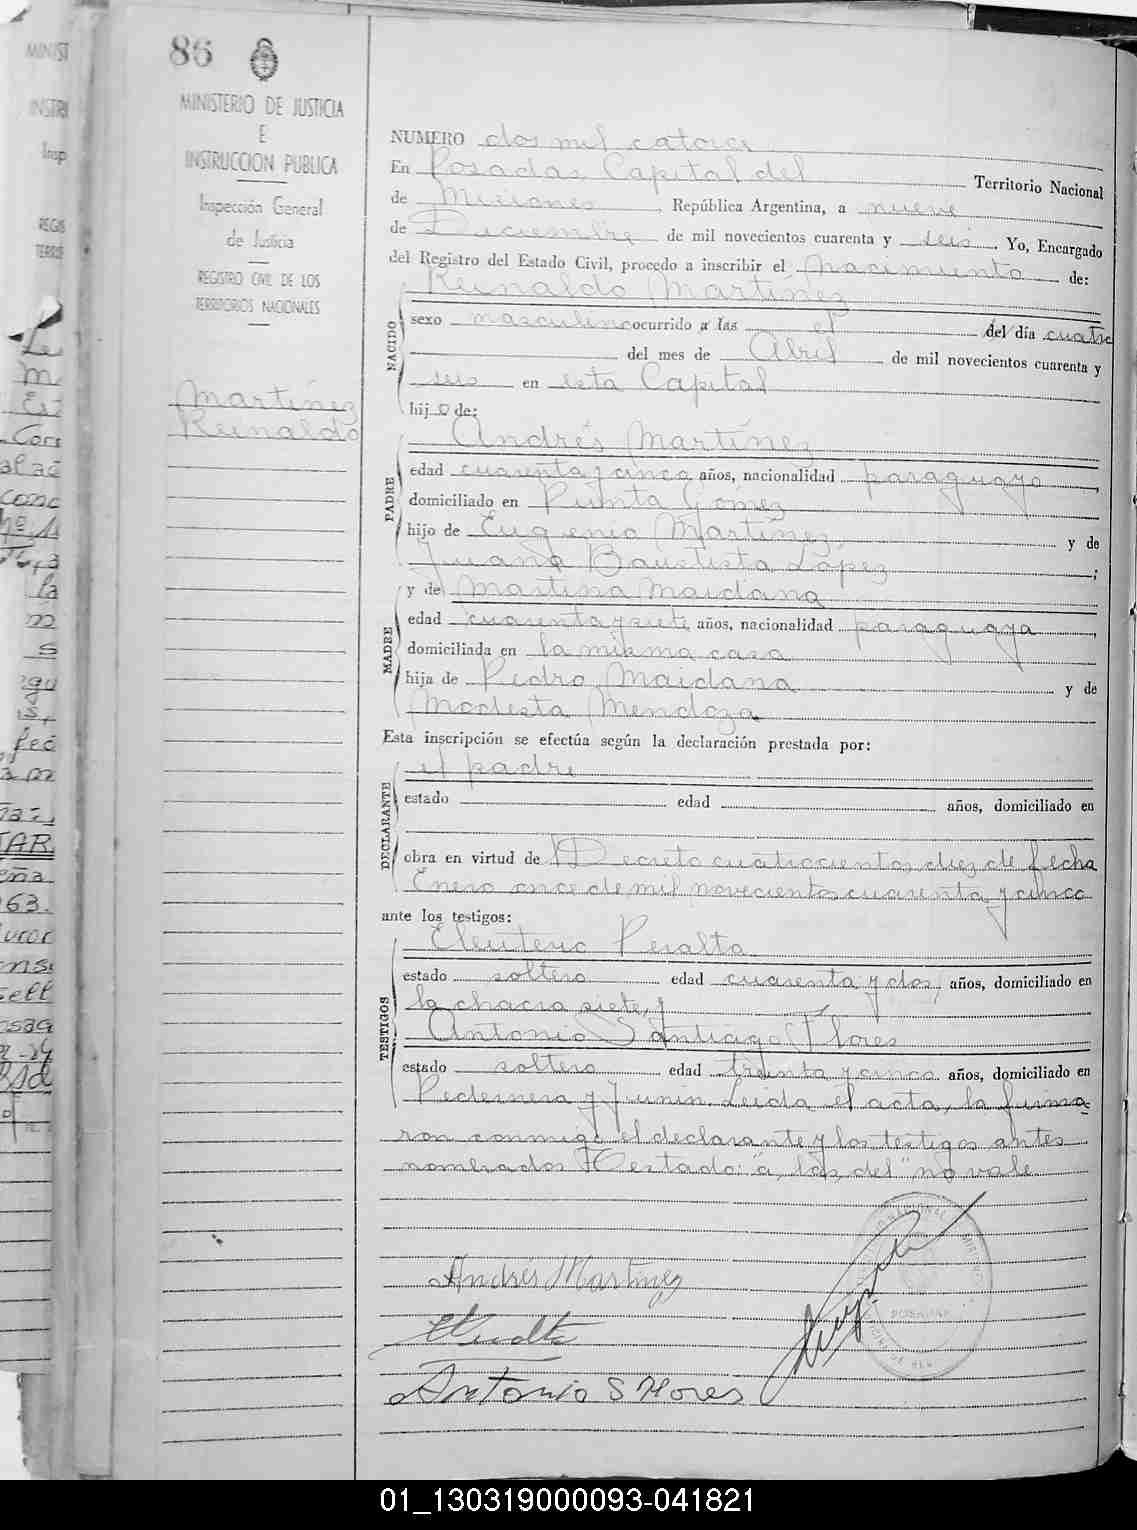 86
MINISTERIO DE JUSTICIA
E
INSTRUCCION PUBLICA
Inspección General
de Justicia
REGISTRO CIVIL DE LOS
TERRITORIOS NACIONALES
Martínez
Reinaldo
NUMERO dos mil catorce
En Posadas Capital del Territorio Nacional
de Misiones, República Argentina, a nueve
de Diciembre de mil novecientos cuarenta y seis. Yo, Encargado
del Registro del Estado Civil, procedo a inscribir el nacimiento de:
Reinaldo Martínez
NACIDO
sexo masculino ocurrido a las el del día cuatro
del mes de Abril de mil novecientos cuarenta y
seis en esta Capital
hijo de:
PADRE
Andrés Martínez
edad cuarenta y cinco años, nacionalidad paraguayo,
domiciliado en Punta Gómez
hijo de Eugenio Martínez, y de
Juana Bautista López;
MADRE
y de Martina Maidana
edad cuarenta y siete años, nacionalidad paraguaya,
domiciliada en la misma casa
hija de Pedro Maidana y de
Modesta Mendoza
Esta inscripción se efectúa según la declaración prestada por:
DECLARANTE
el padre
estado edad años, domiciliado en
obra en virtud de Decreto cuatrocientos diez de fecha
Enero once de mil novecientos cuarenta y cinco
ante los testigos:
TESTIGOS
Eleuterio Peralta
estado soltero edad cuarenta y dos, años, domiciliado en
la chacra siete, y
Antonio Santiago Flores
estado soltero edad treinta y cinco años, domiciliado en
Pedernera y Junin. Leida el acta, la firma-
ron conmigo el declarante y los testigos antes
nombrados. Testado: "a, las, del" no vale
Andres Martinez
Antonio S Flores
POSADAS
01_130319000093-041821